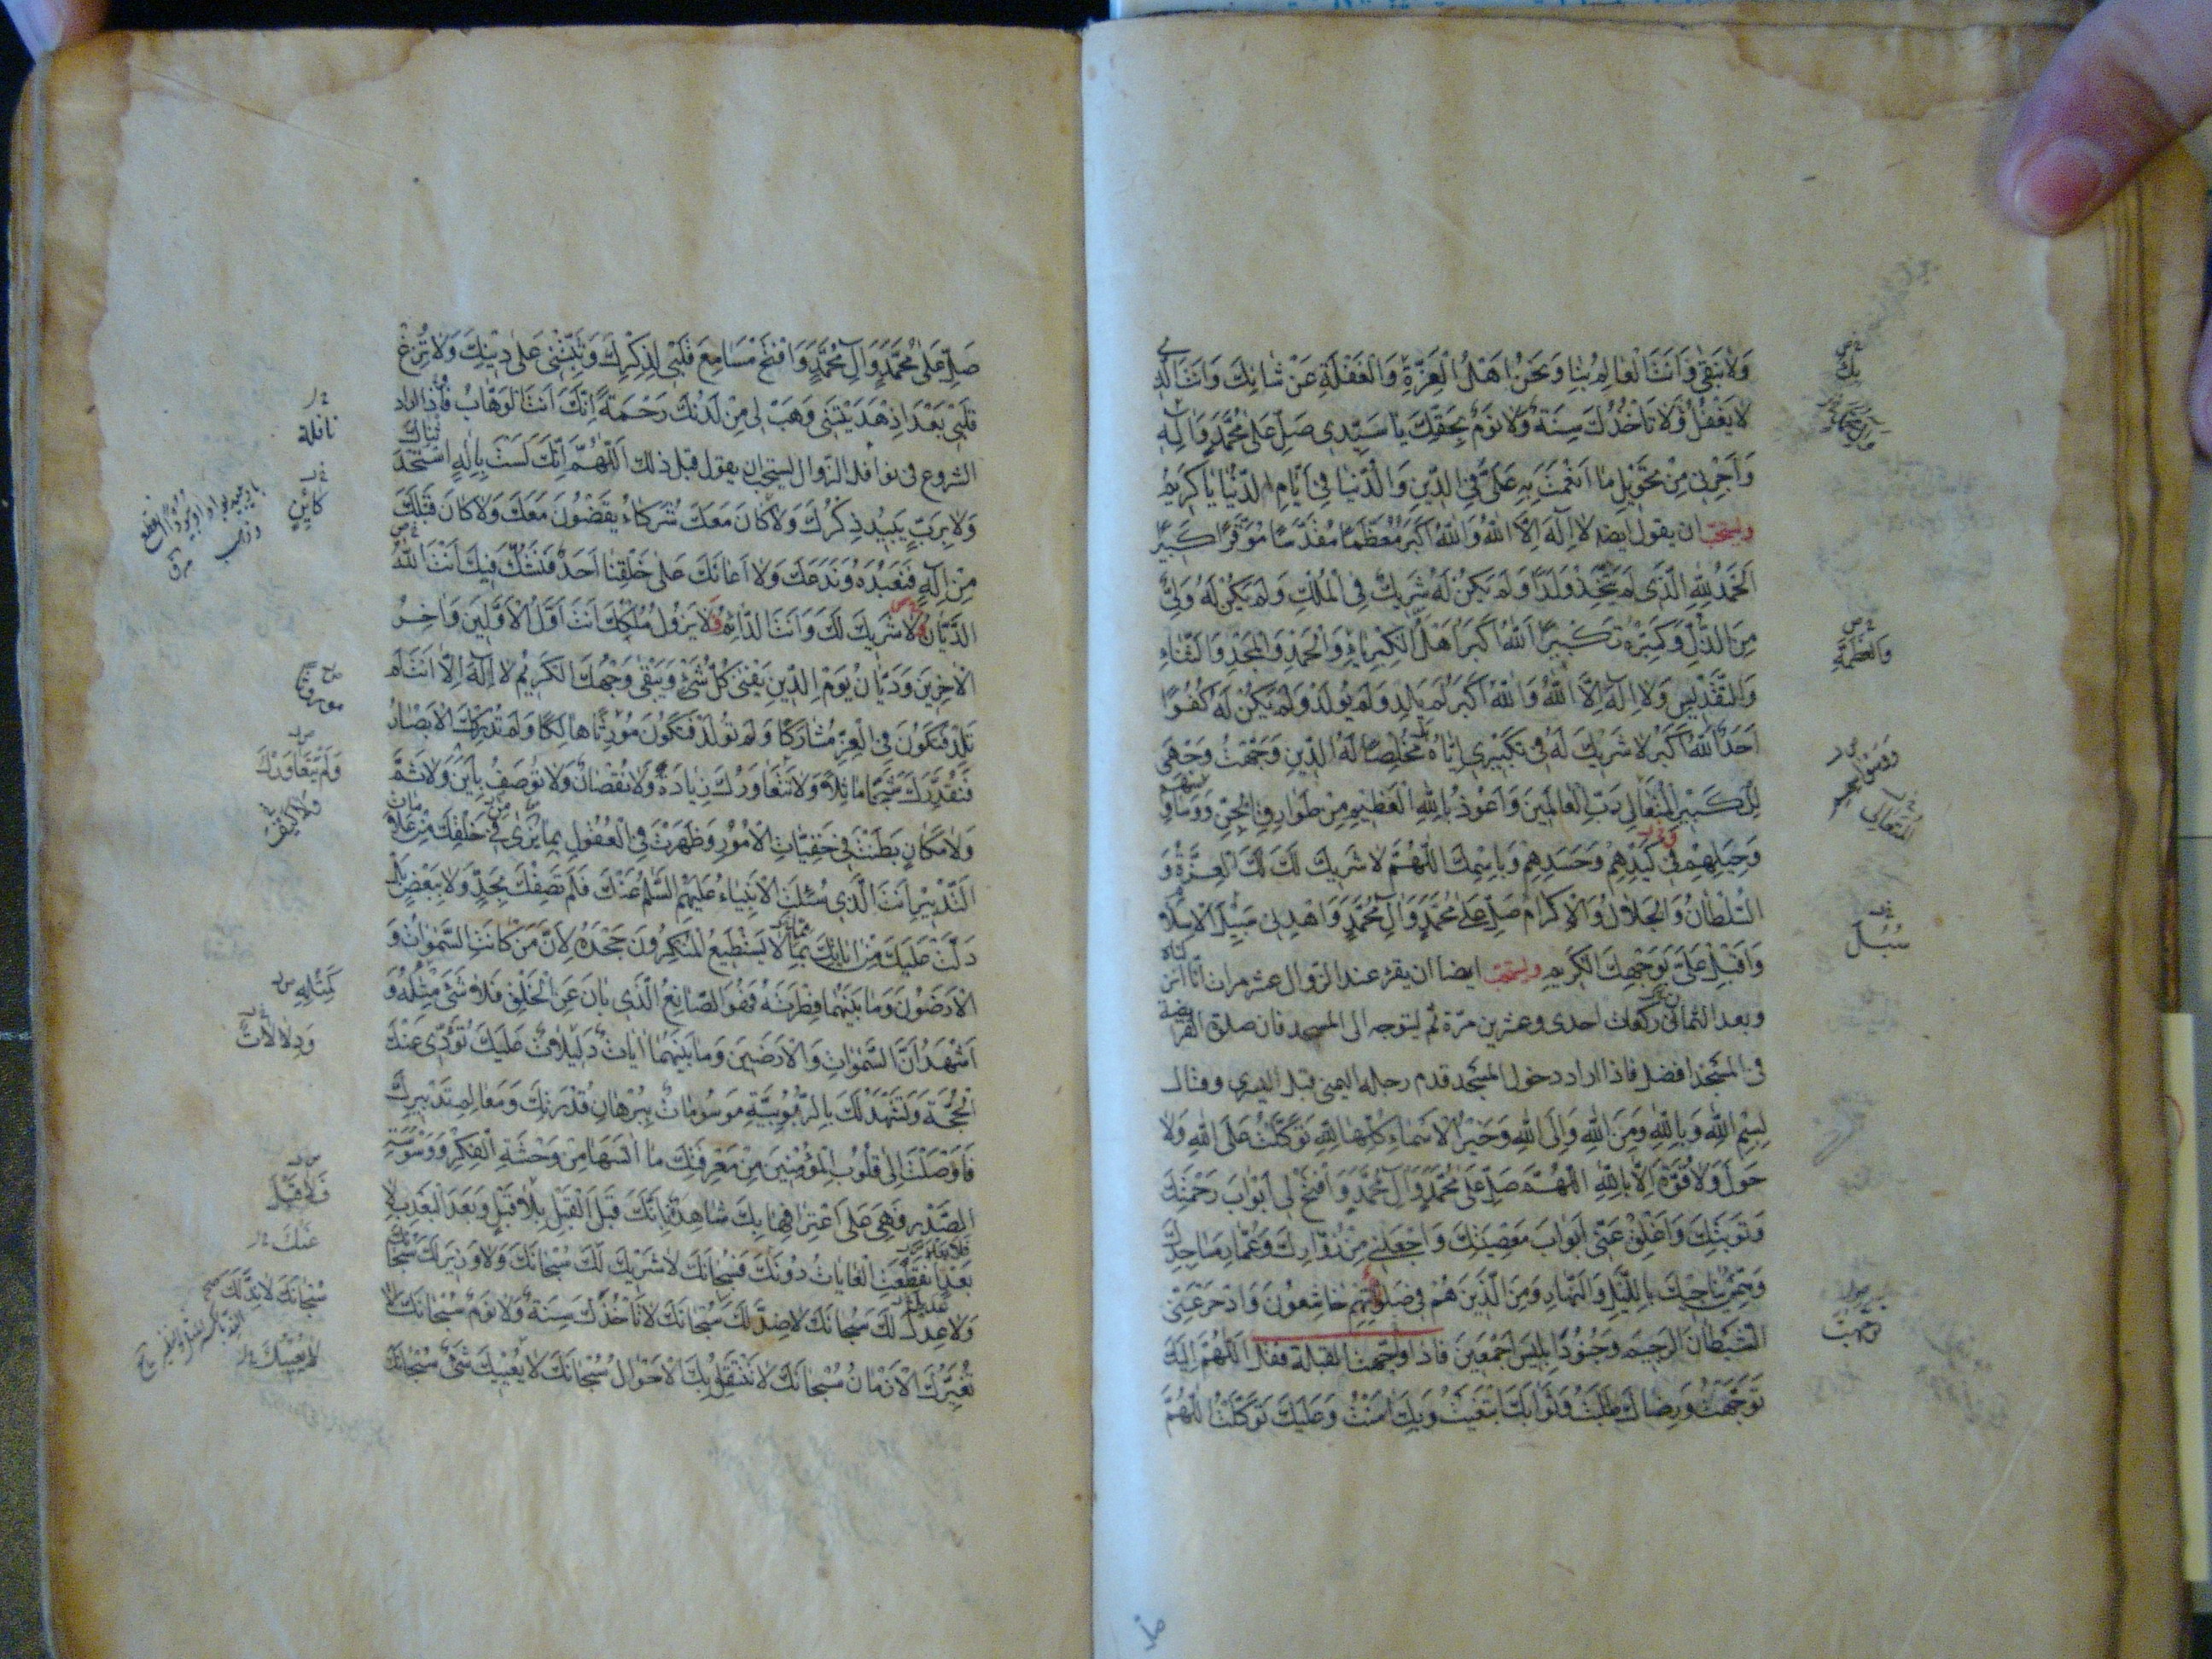 وَلَا تَبْقَىٰ وَاَنْتَ الْعَالِمُ بِنَا وَنَحْنُ اَهْلُ الْغِرَّةِ وَالْغَفْلَةِ عَنْ شَانِكَ وَاَنْتَ الَّذِى
لَا يَغْفُلُ وَلَا تَأْخُذُكَ سِنَةٌ وَلَا نَوْمٌ بِحَقِّكَ يَا سَيِّدِى صَلِّ عَلىٰ مُحَمَّدٍ وَآلِهِ
وَاَجِرْنِى مِنْ تَحْوِيْلِ مَا اَنْعَمْتَ بِهِ عَلَىَّ فِى الدِّينِ وَالدُّنْيَا فِى اَيَّامِ الدُّنْيَا يَا كَرِيْمُ
ويستحب ان يقول ايضا لا اِلٰهَ اِلَّا اللهُ وَاللهُ اَكْبَرُ مُعَظَّمًا مُقَدَّسًا مُوَقَّرًا كَبِيْرًا
اَلْحَمْدُ لِلّٰهِ الَّذِى لَمْ يَتَّخِذْ وَلَدًا وَلَمْ يَكُنْ لَهُ شَرِيْكٌ فِى الْمُلْكِ وَلَمْ يَكُنْ لَهُ وَلِىٌّ
مِنَ الذُّلِّ وَكَبِّرْهُ تَكْبِيْرًا اَللهُ اَكْبَرُ اَهْلُ الْكِبْرِيَاءِ وَالْحَمْدِ وَالْمَجْدِ وَالثَّنَاءِ
وَالتَّقْدِيْسِ وَلَا اِلٰهَ اِلَّا اللهُ وَاللهُ اَكْبَرُ لَمْ يَلِدْ وَلَمْ يُوْلَدْ وَلَمْ يَكُنْ لَهُ كُفُوًا
اَحَدٌ اَللهُ اَكْبَرُ لَا شَرِيْكَ لَهُ فِى تَكْبِيْرِى اِيَّاهُ مُخْلِصًا لَهُ الدِّيْنَ وَجَّهْتُ وَجْهِىَ
لِلْكَبِيْرِ الْمُتَعَالِ رَبِّ الْعَالَمِيْنَ وَاَعُوْذُ بِاللهِ الْعَظِيْمِ مِنْ طَوَارِقِ الْجِنِّ وَوَسَاوِسِهِمْ
وَحِيَلِهِمْ وَكَيْدِهِمْ وَحَسَدِهِمْ وَبِاسْمِكَ اللّٰهُمَّ لَا شَرِيْكَ لَكَ لَكَ الْعِزَّةُ وَ
السُّلْطَانُ وَالْجَلَالُ وَالْاِكْرَامُ صَلِّ عَلىٰ مُحَمَّدٍ وَآلِ مُحَمَّدٍ وَاهْدِنِى سَبِيْلَ الْاِسْلَامِ
وَاَقْبِلْ عَلَىَّ بِوَجْهِكَ الْكَرِيْمِ ويستحب ايضا ان يقرء عند الزوال عشر مرات انا انزلناه
وبعد الثمانى ركعات احدى وعشرين مرة ثم ليتوجه الى المسجد فان صلاة الفريضة
فى المسجد افضل فاذا اراد دخول المسجد قدم رجله اليمنى قبل اليسرى وقال
بِسْمِ اللهِ وَبِاللهِ وَمِنَ اللهِ وَاِلَى اللهِ وَخَيْرُ الْاَسْمَاءِ كُلُّهَا لِلّٰهِ تَوَكَّلْتُ عَلَى اللهِ وَلَا
حَوْلَ وَلَا قُوَّةَ اِلَّا بِاللهِ اَللّٰهُمَّ صَلِّ عَلىٰ مُحَمَّدٍ وَآلِ مُحَمَّدٍ وَافْتَحْ لِى اَبْوَابَ رَحْمَتِكَ
وَتَوْبَتِكَ وَاَغْلِقْ عَنِّى اَبْوَابَ مَعْصِيَتِكَ وَاجْعَلْنِى مِنْ زُوَّارِكَ وَعُمَّارِ مَسَاجِدِكَ
وَمِمَّنْ يُنَاجِيْكَ بِاللَّيْلِ وَالنَّهَارِ وَمِنَ الَّذِيْنَ هُمْ فِى صَلَوٰتِهِمْ خَاشِعُوْنَ وَادْحَرْ عَنِّى
الشَّيْطَانَ الرَّجِيْمَ وَجُنُوْدَ اِبْلِيْسَ اَجْمَعِيْنَ فاذا توجهت القبلة فقل اَللّٰهُمَّ اِلَيْكَ
تَوَجَّهْتُ وَرِضَاكَ طَلَبْتُ وَثَوَابَكَ ابْتَغَيْتُ وَبِكَ اٰمَنْتُ وَعَلَيْكَ تَوَكَّلْتُ اَللّٰهُمَّ
بِكَ
وَالْعَظَمَةِ
الْمُتَعَالِى
سُبُلَ
صَلِّ عَلىٰ مُحَمَّدٍ وَآلِ مُحَمَّدٍ وَافْتَحْ مَسَامِعَ قَلْبِى لِذِكْرِكَ وَثَبِّتْنِى عَلىٰ دِيْنِكَ وَلَا تُزِغْ
قَلْبِى بَعْدَ اِذْ هَدَيْتَنِى وَهَبْ لِى مِنْ لَدُنْكَ رَحْمَةً اِنَّكَ اَنْتَ الْوَهَّابُ فاذا اراد
الشروع فى نوافل الزوال يستحب ان يقول قبل ذلك اَللّٰهُمَّ اِنَّكَ لَسْتَ بِاِلٰهٍ اسْتَحْدَثْنَاكَ
وَلَا بِرَبٍّ يَبِيْدُ ذِكْرُكَ وَلَا كَانَ مَعَكَ شُرَكَاءُ يَقْضُوْنَ مَعَكَ وَلَا كَانَ قَبْلَكَ
مِنْ اِلٰهٍ فَنَعْبُدَهُ وَنَدَعَكَ وَلَا اَعَانَكَ عَلىٰ خَلْقِنَا اَحَدٌ فَنَشُكَّ فِيْكَ اَنْتَ اللهُ
الدَّيَّانُ لَا شَرِيْكَ لَكَ وَاَنْتَ الدَّائِمُ لَا يَزُوْلُ مُلْكُكَ اَنْتَ اَوَّلُ الْاَوَّلِيْنَ وَاٰخِرُ
الْاٰخِرِيْنَ وَدَيَّانُ يَوْمِ الدِّيْنِ يَفْنىٰ كُلُّ شَىْءٍ وَيَبْقىٰ وَجْهُكَ الْكَرِيْمُ لَا اِلٰهَ اِلَّا اَنْتَ لَمْ
تَلِدْ فَتَكُوْنَ فِى الْعِزِّ مُشَارَكًا وَلَمْ تُوْلَدْ فَتَكُوْنَ مُوْرِثًا هَالِكًا وَلَمْ تُدْرِكْكَ الْاَبْصَارُ
فَتُقَدِّرَكَ شَبَحًا مَاثِلًا وَلَا تَتَعَاوَرُكَ زِيَادَةٌ وَلَا نُقْصَانٌ وَلَا تُوْصَفُ بِاَيْنَ وَلَا ثَمَّ
وَلَا مَكَانٍ بَطَنْتَ فِى خَفِيَّاتِ الْاُمُوْرِ وَظَهَرْتَ فِى الْعُقُوْلِ بِمَا يُرىٰ فِى خَلْقِكَ مِنْ عَلَامَاتِ
التَّدْبِيْرِ اَنْتَ الَّذِى سُئِلَتِ الْاَنْبِيَاءُ عَلَيْهِمُ السَّلَمُ عَنْكَ فَلَمْ تَصِفْكَ بِحَدٍّ وَلَا بِبَعْضٍ بَلْ
دَلَّتْ عَلَيْكَ مِنْ اٰيَاتِكَ بِمَا لَا يَسْتَطِيْعُ الْمُنْكِرُوْنَ جَحْدَهُ لِاَنَّ مَنْ كَانَتِ السَّمٰوَاتُ وَ
الْاَرَضُوْنَ وَمَا بَيْنَهُمَا فِطْرَتَهُ فَهُوَ الصَّانِعُ الَّذِى بَانَ عَنِ الْخَلْقِ فَلَا شَىْءَ مِثْلُهُ وَ
اَشْهَدُ اَنَّ السَّمٰوَاتِ وَالْاَرَضِيْنَ وَمَا بَيْنَهُمَا اٰيَاتٌ دَلِيْلَاتٌ عَلَيْكَ تُؤَدِّى عَنْكَ
الْحُجَّةَ وَتَشْهَدُ لَكَ بِالرُّبُوْبِيَّةِ مَوْسُوْمَاتٌ بِبُرْهَانِ قُدْرَتِكَ وَمَعَالِمِ تَدْبِيْرِكَ
فَاَوْصَلْتَ اِلىٰ قُلُوْبِ الْمُؤْمِنِيْنَ مِنْ مَعْرِفَتِكَ مَا اٰنَسَهَا مِنْ وَحْشَةِ الْفِكْرِ وَوَسْوَسَةِ
الصَّدْرِ فَهِىَ عَلىٰ اعْتِرَافِهَا بِكَ شَاهِدَةٌ بِاَنَّكَ قَبْلَ الْقَبْلِ بِلَا قَبْلٍ وَبَعْدَ الْبَعْدِ بِلَا
بَعْدٍ انْقَطَعَتِ الْغَايَاتُ دُوْنَكَ فَسُبْحَانَكَ لَا شَرِيْكَ لَكَ سُبْحَانَكَ وَلَا وَزِيْرَ لَكَ سُبْحَانَكَ
وَلَا عِدْلَ لَكَ سُبْحَانَكَ لَا ضِدَّ لَكَ سُبْحَانَكَ لَا تَأْخُذُكَ سِنَةٌ وَلَا نَوْمٌ سُبْحَانَكَ لَا
تُغَيِّرُكَ الْاَزْمَانُ سُبْحَانَكَ لَا تَنْتَقِلُ بِكَ الْاَحْوَالُ سُبْحَانَكَ لَا يُعْيِيْكَ شَىْءٌ سُبْحَانَكَ
نافلة
كَائِنٍ
مورونا
وَلَمْ يَتَعَاوَرْكَ
وَلَا كَيْفَ
كَمِثْلِهِ
وَدِلَالَاتٌ
فَلَا قَبْلَ
عَنْكَ
سُبْحَانَكَ لَا نِدَّ لَكَ